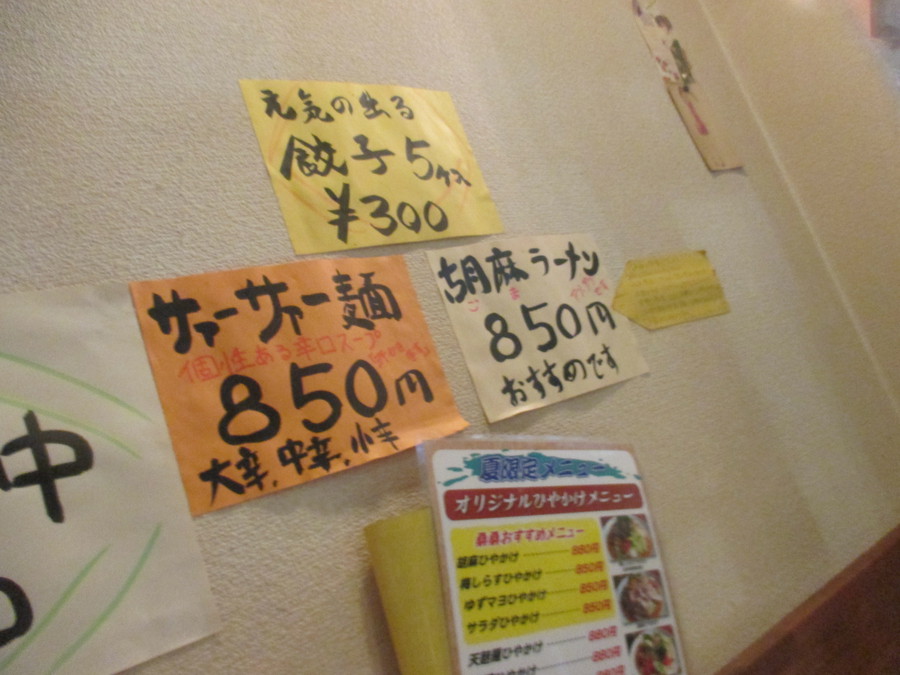 元気の出る
餃子5ケ入
¥300
サァーサァー麺
個性ある辛口スープ
850円
大辛、中辛、小辛
胡麻ラーメン
ごま
850円
おすすめです
中
夏限定メニュー
オリジナルひやかけメニュー
桑桑おすすめメニュー
胡麻ひやかけ 880円
梅しらすひやかけ 850円
ゆずマヨひやかけ 850円
サラダひやかけ 850円
天麩羅ひやかけ 880円